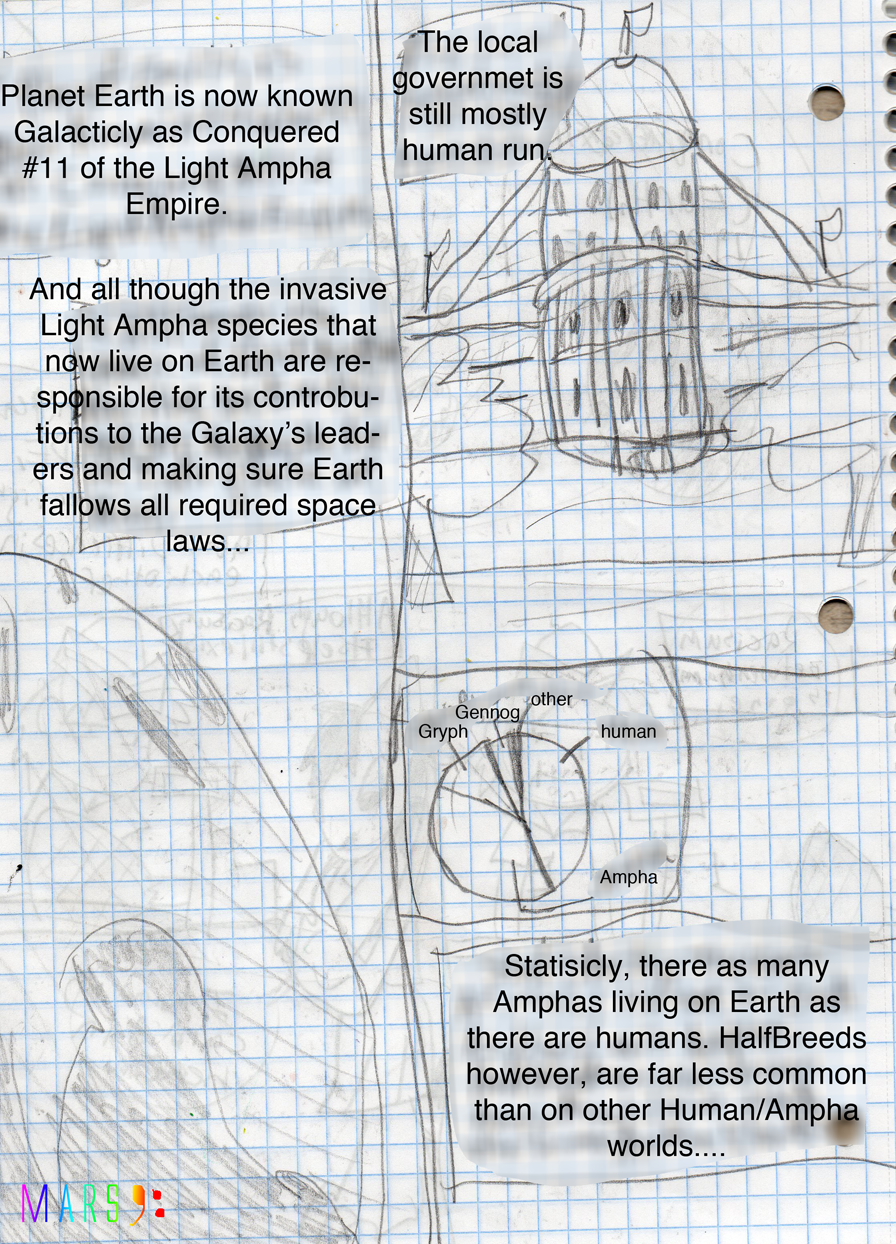 Planet Earth is now known
Galacticly as Conquered
#11 of the Light Ampha
Empire.
The local
governmet is
still mostly
human run.
And all though the invasive
Light Ampha species that
now live on Earth are re-
sponsible for its controbu-
tions to the Galaxy's lead-
ers and making sure Earth
fallows all required space
laws...
other
Gennog
Gryph
human
Ampha
Statisicly, there as many
Amphas living on Earth as
there are humans. HalfBreeds
however, are far less common
than on other Human/Ampha
worlds....
MARS